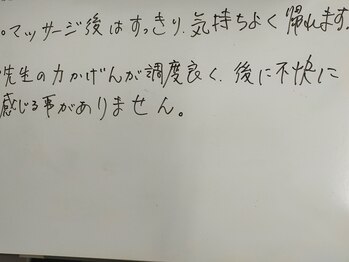 ○マッサージ後はすっきり、気持ちよく帰れます。
先生の力かげんが調度良く、後に不快に
感じる事がありません。